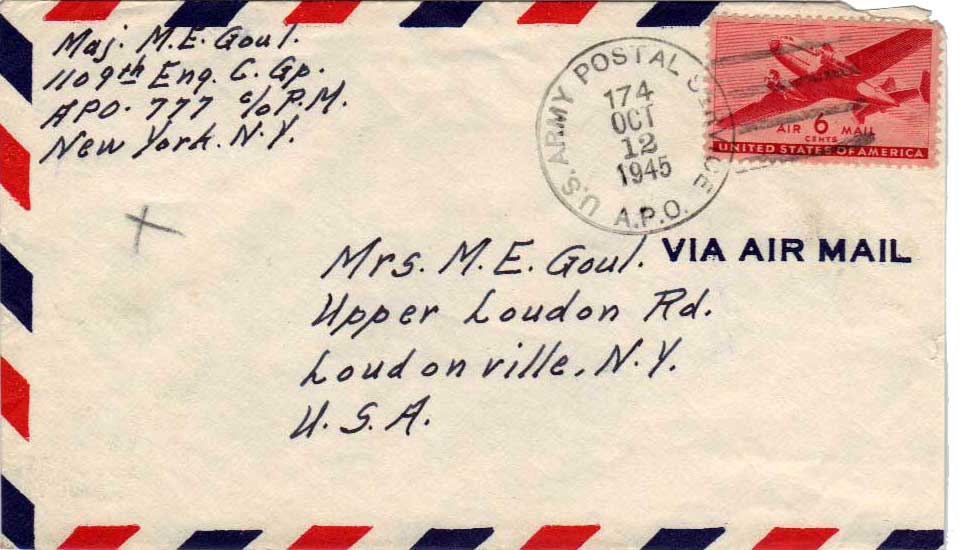 Maj. M.E. Goul.
1109th Eng. C. Gp.
APO. 777 c/o P.M.
New York. N.Y.
U.S. ARMY POSTAL SERVICE
174
OCT
12
1945
A.P.O.
AIR 6 MAIL
CENTS
UNITED STATES OF AMERICA
VIA AIR MAIL
Mrs. M.E. Goul.
Upper Loudon Rd.
Loudonville, N.Y.
U.S.A.